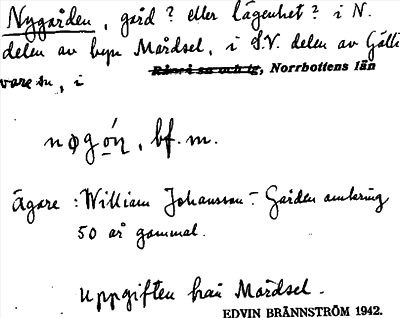 Nygården, gård? eller lägenhet? i N.
delen av byn Mårdsel, i S.V. delen av Gälli
vare sn, i Råneå sn och tg, Norrbottens län
bf. m.
Ägare: William Johansson - Gården omkring
50 år gammal.
Uppgiften från Mårdsel.
EDVIN BRÄNNSTRÖM 1942.